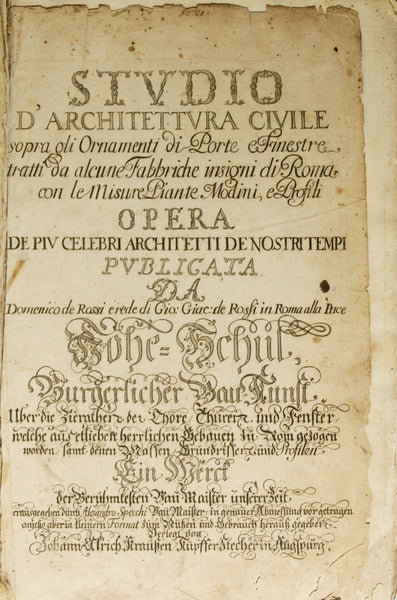 STVDIO
D'ARCHITETTVRA CIVILE
sopra gli Ornamenti di Porte e Finestre,
tratti da alcune Fabbriche insigni di Roma
con le Misure Piante Modini, e Profili
OPERA
DE PIV CELEBRI ARCHITETTI DE NOSTRI TEMPI
PVBLICATA
DA
Domenico de Rossi erede di Gio: Giac: de Rossi in Roma alla Pace
Hohe-Schul,
Bürgerlicher Bau-Kunst.
Uber die Zierathen der Thore Thüren und Fenster
welche aus etlichen herrlichen Gebäuen zu Rom gezogen
worden samt denen Massen Grundrissen und Profilen
Ein Werck
der Berühmtesten Bau Maister unserer Zeit
Alexandro Specchi Bau Maister in genauer Abmessung vor getragen
aber in kleinern Format zum Nutzen und Gebrauch heraus gegeben
Verlegt von
Johann Ulrich Kraußen Kupffer Stecher in Augspurg.